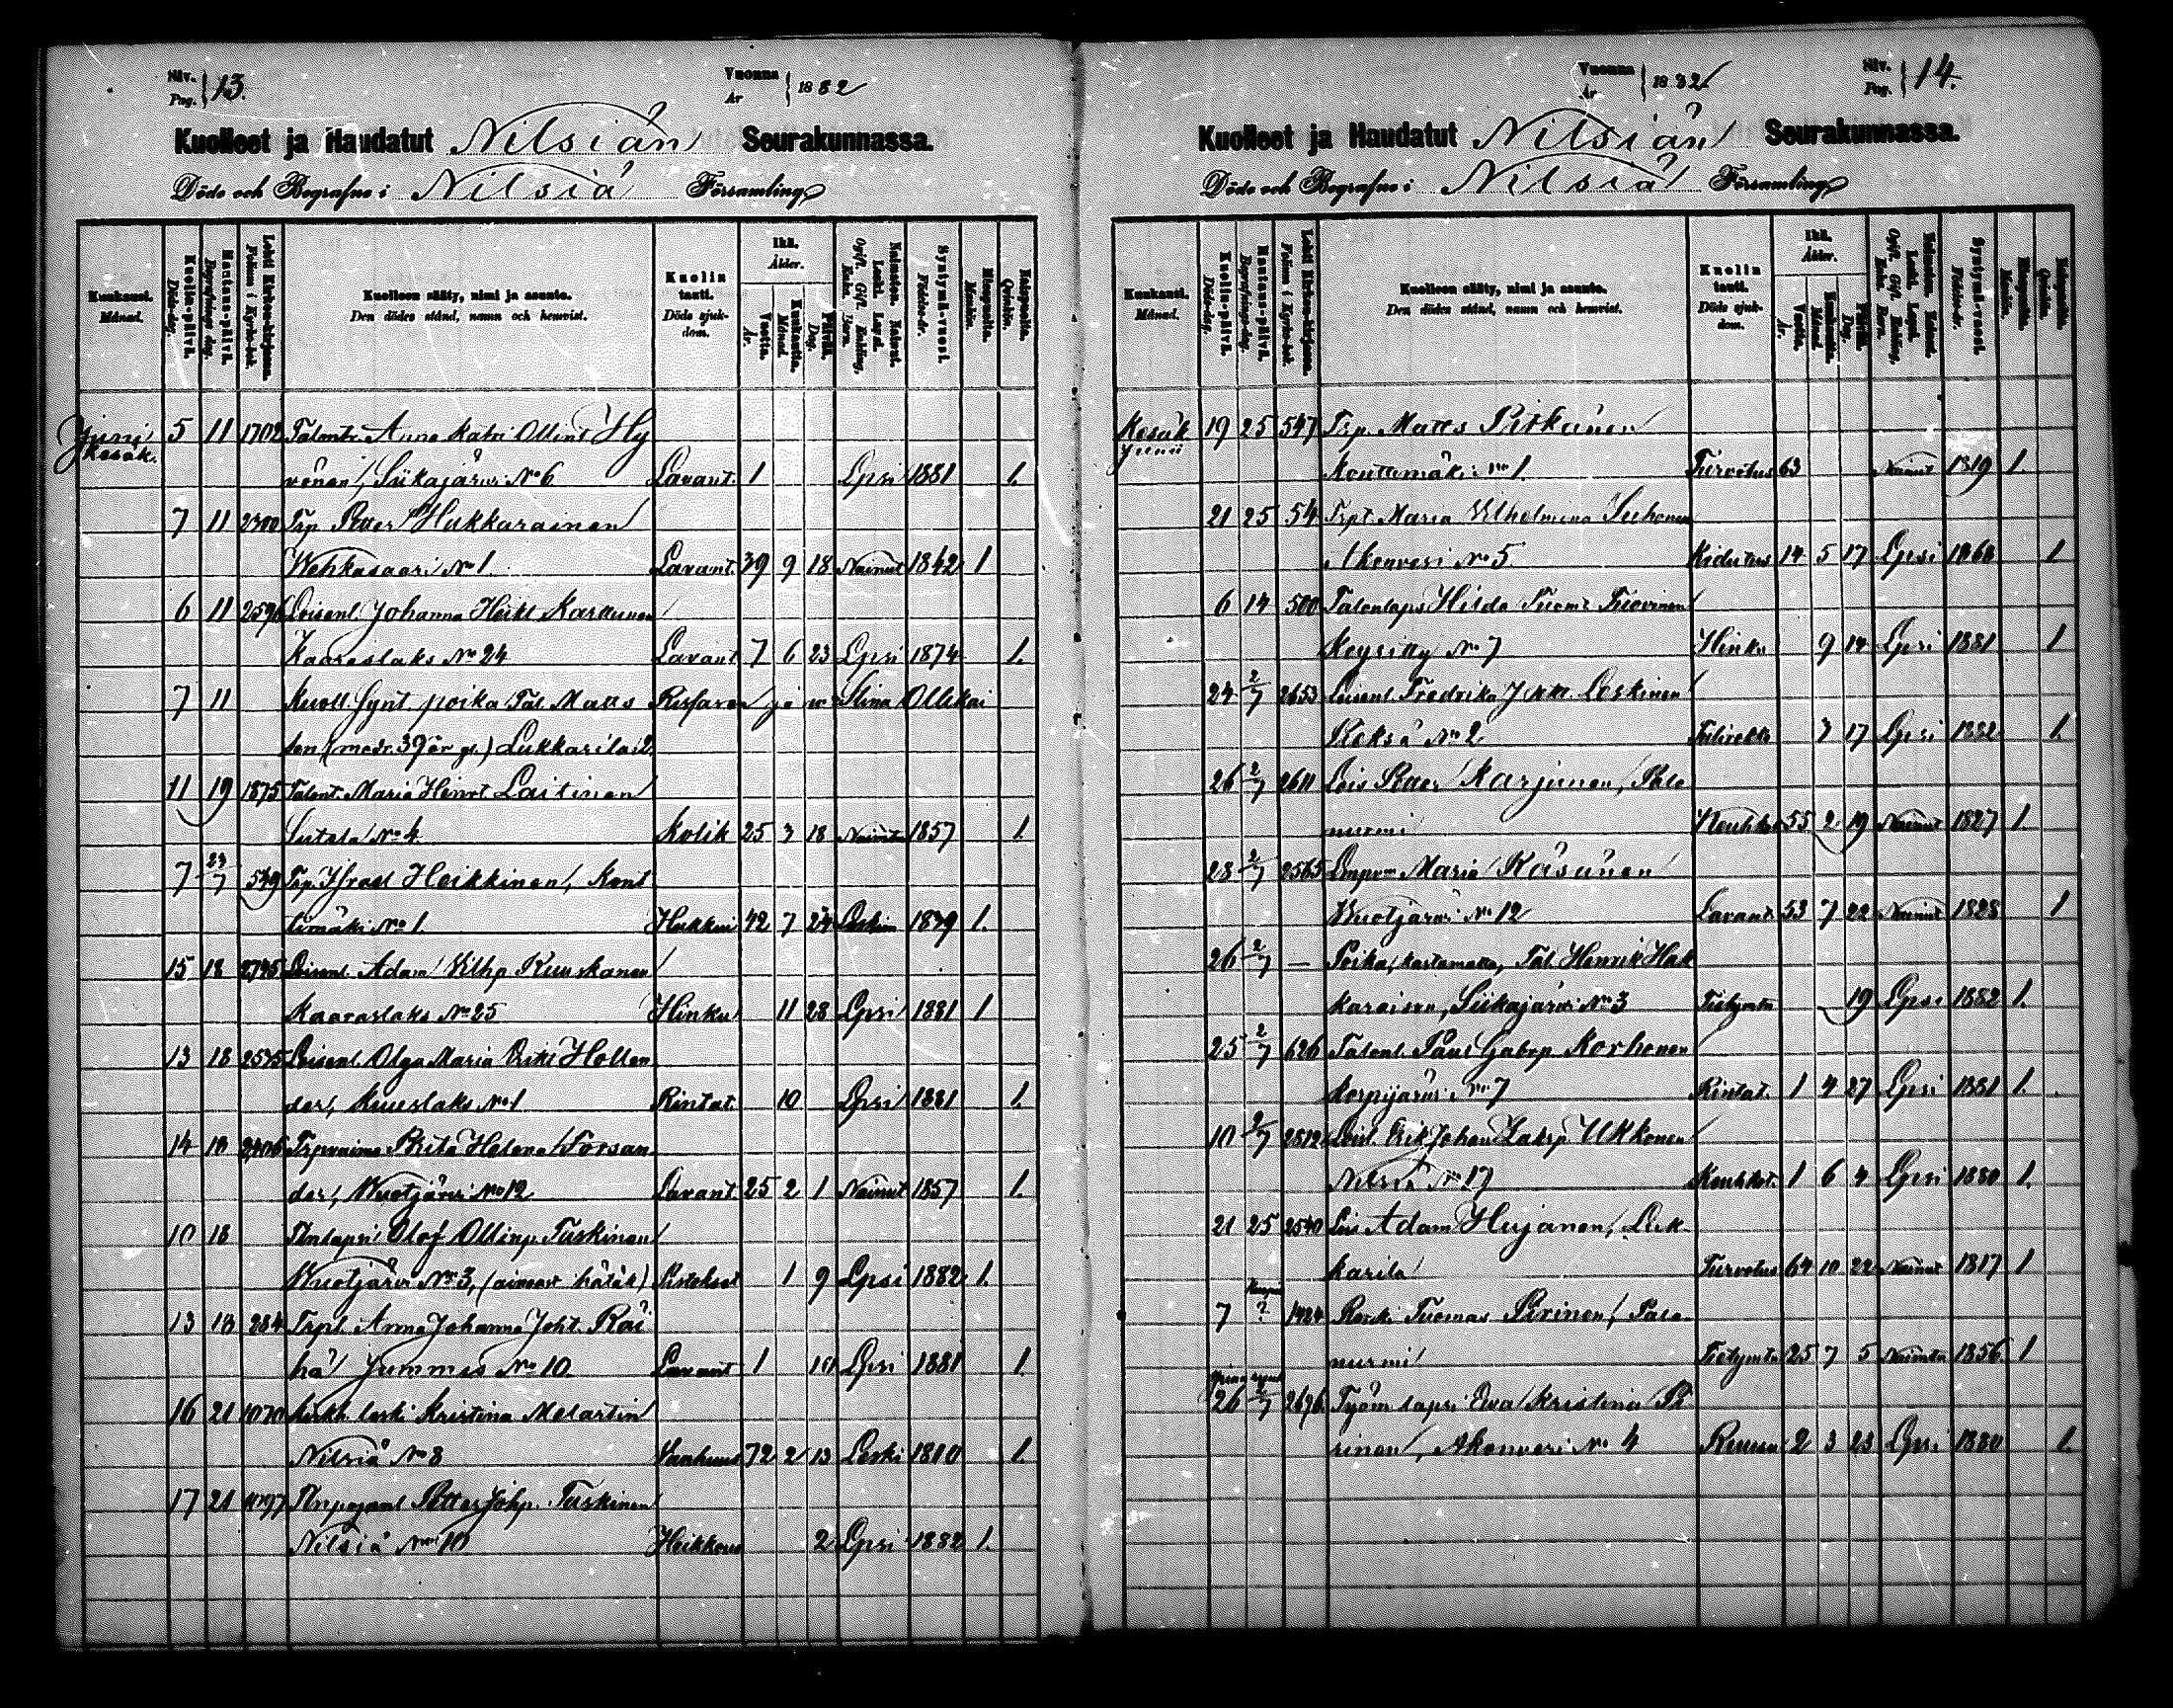 Siv. Pag. 13.
Vuonna År 1882
Kuolleet ja Haudatut Nilsiän Seurakunnassa.
Döde och Begrafne i Nilsiä Församling
Kuukausi. Månad.
Kuolin-päivä. Döds-dag.
Hautaus-päivä. Begrafnings dag.
Lehti Kirkon-kirjassa. Folium i Kyrko-bok.
Kuolleen sääty, nimi ja asunto. Den dödes stånd, namn och hemvist.
Kuolin tauti. Döds sjuk-dom.
Ikä. Ålder.
Vuotta. År.
Kuukautta. Månad.
Päivää. Dag.
Naimaton. Nainut. Leski. Lapsi. Ogift. Gift. Enkling. Enka. Barn.
Syntymä-vuosi. Födelse-år.
Miespuolia. Mankön.
Vaimopuolia. Qvinkön.
Juni 5 11 1702 Talontr Anna Katri Ollint Hy
Kesäk.
vönen, Siikajärvi No 6 Lavant. 1 Lpsi 1881 1.
7 11 2700 Trp. Petter Hukkarainen
Wehkasaari No 1 Lavant. 39 9 18 Nainut 1842 1
6 11 Loisenl. Johanna Heikt Karttunen
Kaaraslaks No 24 Lavant 7 6 23 Lpsi 1874 1.
7 11 Kuoll. synt. poika Tal. Matts Rissasen ja Stina Ollikai
sen (modr. 39 år gl.) Lukkarila 2
11 19 1875 Talont. Maria Henrt. Laitinen
No 4 Kolik 25 3 18 1857 1.
7 23/7 549 Trp. Israel Heikkinen, Kont
timäki No 1. Hukkui 42 7 24 Leskim 1839 1.
15 18 2795 Loisenl. Adam Wilhp Ruuskanen
Kaaraslaks No 25 Hinku 11 28 Lpsi 1881 1
13 18 2575 Loisenl. Olga Maria Erikt Hollen
der, No 1 Rintat. 10 Lpsi 1881 1.
14 18 2406 Trpvaimo Brita Helena Forsan
der, Wuotjärvi No 12 Lavant. 25 2 1 Nainut 1857 1.
10 18 Olof Ollinp. Tuskinen
Wuotjärvi No 3, 1 9 Lpsi 1882 1.
13 18 284 Trpl. Anna Johanna Joht. Räi
hä Jummis No 10 Lavant 1 Lpsi 1881 1.
16 21 1070 leski Kristina Molartin
Nilsiä No 8 Vanhuus 72 2 13 Leski 1810 1.
17 21 1097 Petter Johp. Tuskinen
Nilsiä No 10 Heikkous 2 Lpsi 1882 1.
Vuonna År 1882
Siv. Pag. 14.
Kuolleet ja Haudatut Nilsiän Seurakunnassa.
Döde och Begrafne i Nilsiä Församling
Kuukausi. Månad.
Kuolin-päivä. Döds-dag.
Hautaus-päivä. Begrafnings-dag.
Lehti Kirkon-kirjassa. Folium i Kyrko-bok.
Kuolleen sääty, nimi ja asunto. Den dödes stånd, namn och hemvist.
Kuolin tauti. Döds sjuk-dom.
Ikä. Ålder.
Vuotta. År.
Kuukautta. Månad.
Päivää. Dag.
Naimaton. Nainut. Leski. Lapsi. Ogift. Gift. Enkling. Enka. Barn.
Syntymä-vuosi. Födelse-år.
Miespuolia. Mankön.
Vaimopuolia. Qvinkön.
Kesäk 19 25 547 Trp. Matts Pitkänen
Junii
Konttimäki No 1. Turvotus 63 Nainut 1819 1.
21 25 54 Trpt. Maria Wilhelmina Suhonen
Akonvesi No 5 Kidutus 14 5 17 Lpsi 1868 1
6 14 500 Talonlaps Hilda Tuomt Tuovinen
Keyritty No 7 Hinku 9 14 Lpsi 1881 1
24 2/7 2653 Loisenl Fredrika Leskinen
No 2 3 17 Lpsi 1882 1.
26 2/7 2611 Lois Petter Karjunen, Palo
nurmi Keuhkot 55 2 19 Nainut 1827 1.
28 2/7 2565 Maria Räsänen
Wuotjärvi No 12 Lavant. 53 7 22 Nainut 1828 1
26 2/7 — Poika, kastamatta, Tal. Henrik Hak
karaisen, Siikajärvi No 3 Tietymtn 19 Lpsi 1882 1.
25 2/7 626 Talonl. Paul Gabrp. Korhonen
Korpijärvi No 7 Rintat. 1 4 27 Lpsi 1881 1.
10 2/7 2812 Loisl. Erik Johan Zakrp. Ukkonen
Nilsiä No 17 Keuhkot. 1 6 4 Lpsi 1880 1.
21 25 2540 Lois Adam Hujanen, Luk
karila Turvotus 64 10 22 Nainut 1817 1
7 Kuopio ? 1424 Renki Tuomas Pirinen, Palo
nurmi Tietymtn 25 7 5 Naimtn 1856. 1
26 2/7 2696. Työm lapsi Ewa Kristina Pi
rinen, Akonvesi No 4 2 3 23 Lpsi 1880 1.